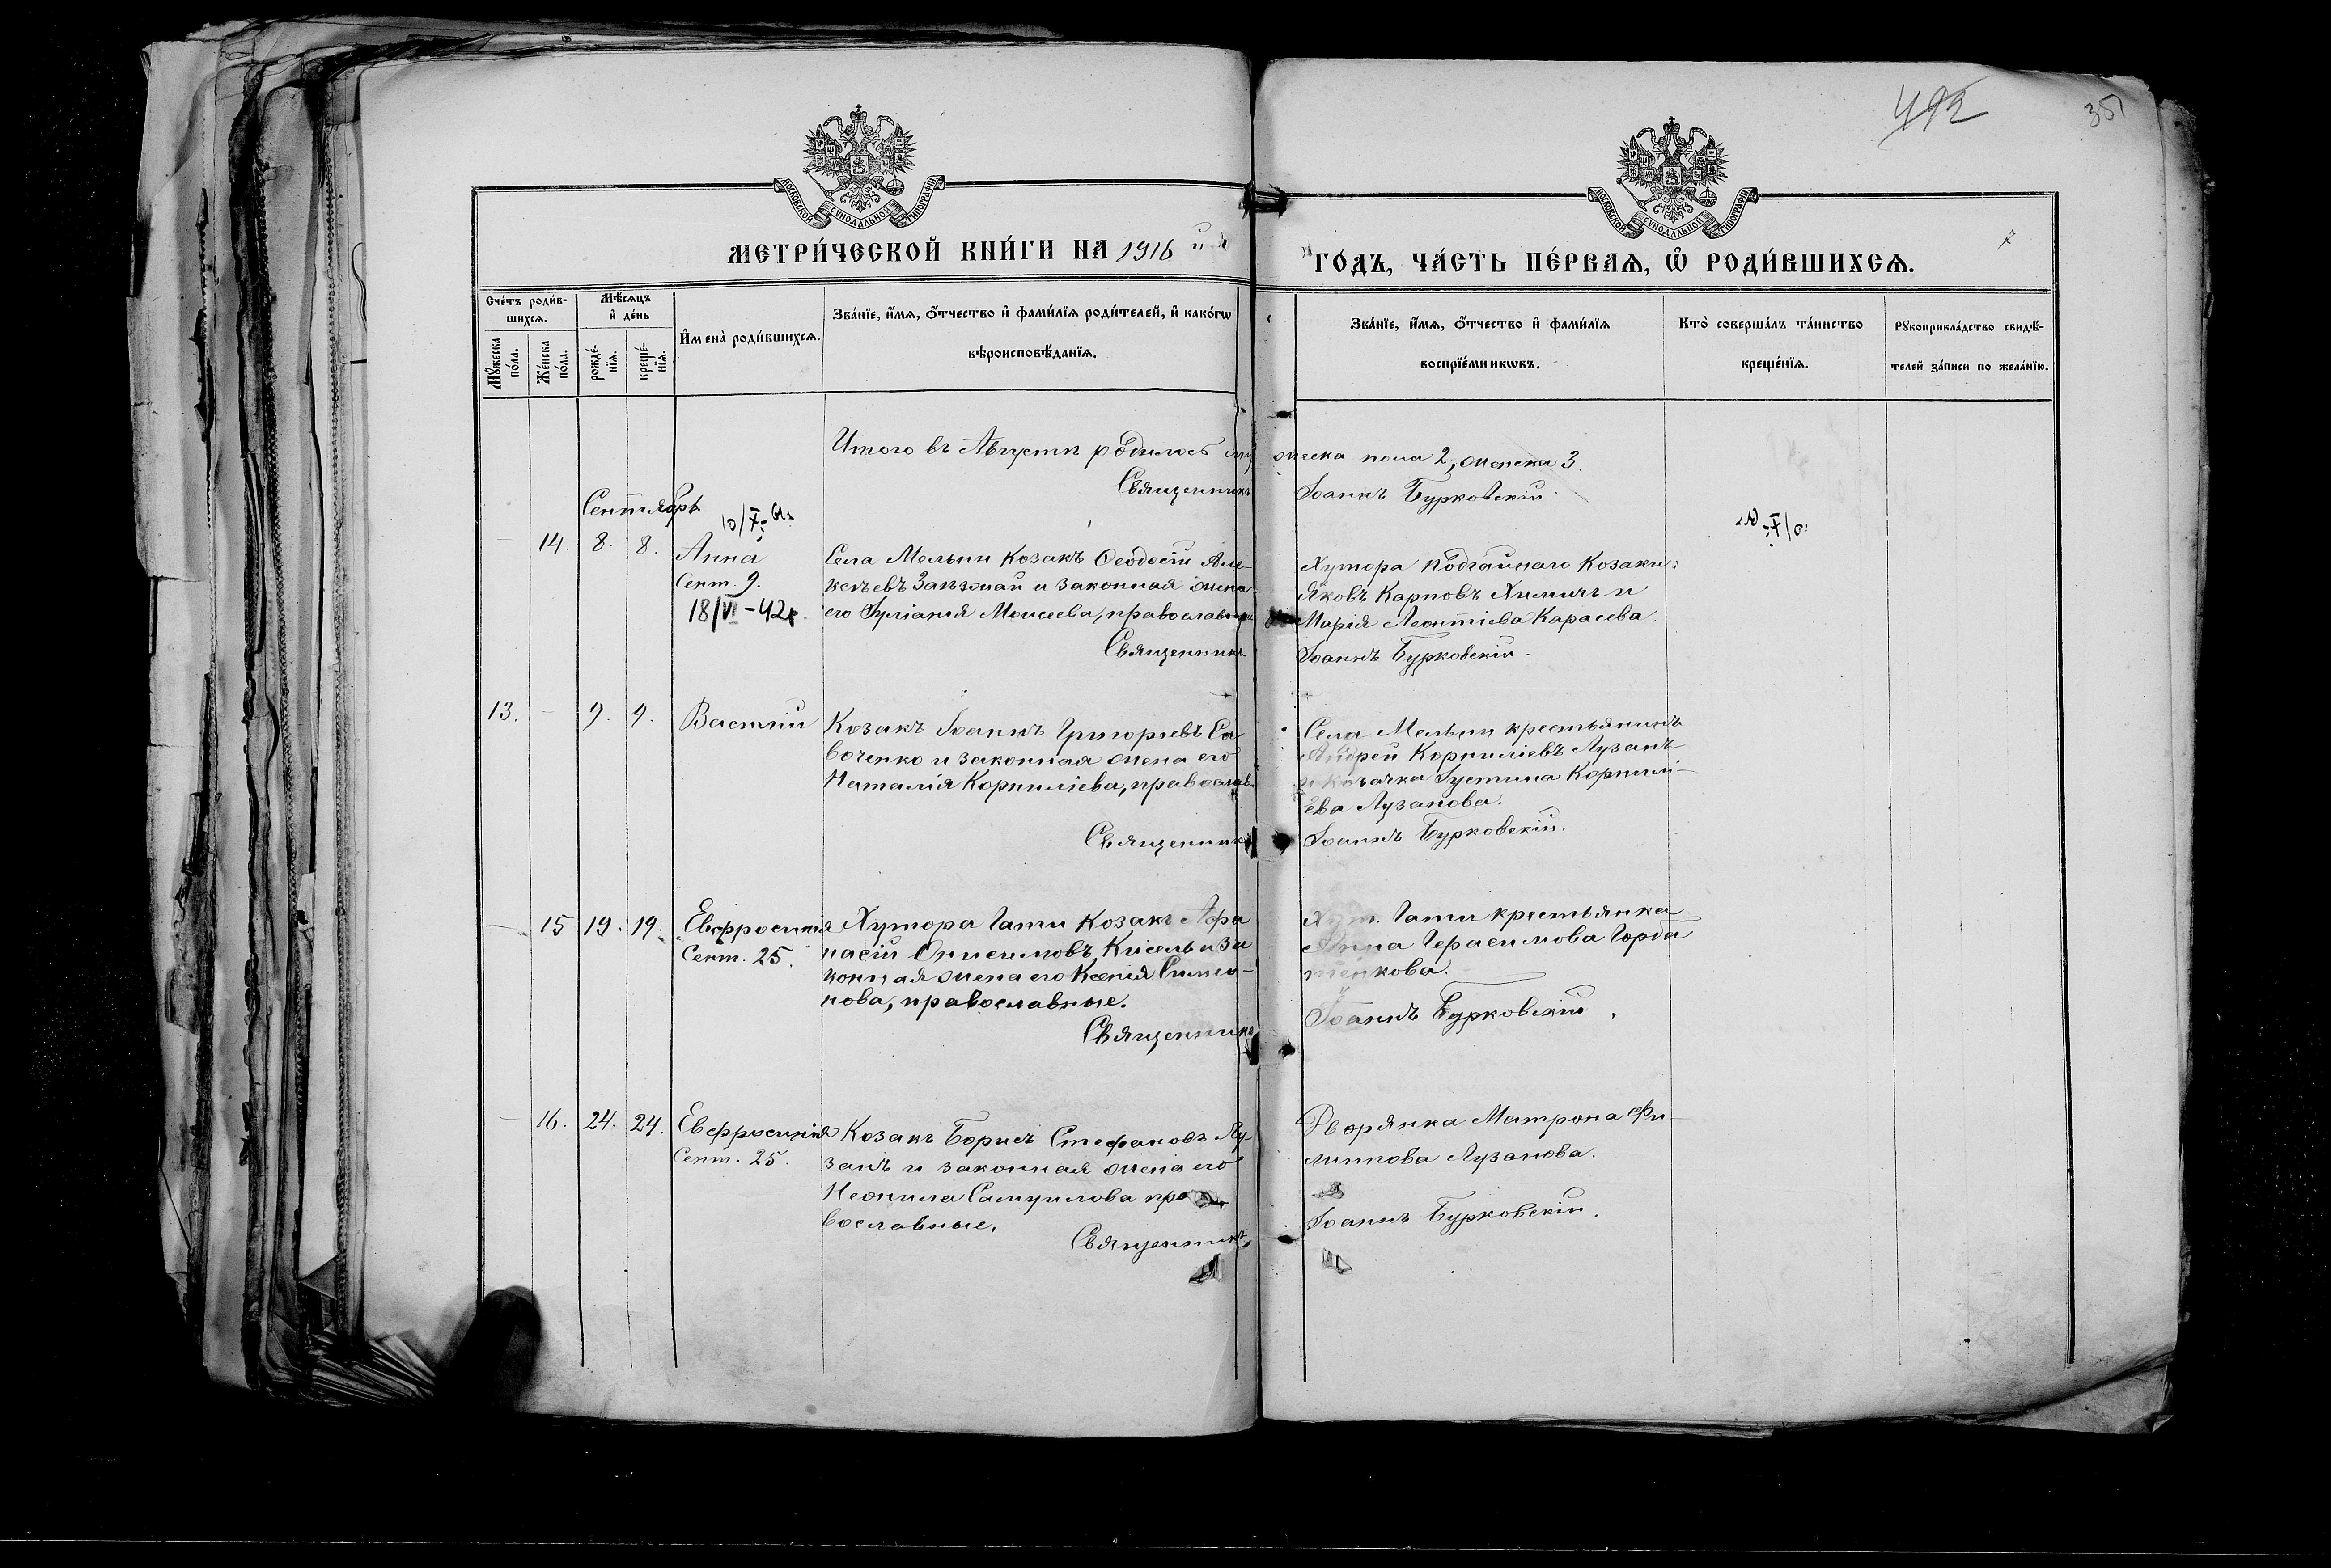 492
351
МОСКОВСКОЙ СѴНОДАЛЬНОЙ ТИПОГРАФІИ
МОСКОВСКОЙ СѴНОДАЛЬНОЙ ТИПОГРАФІИ
МЕТРИ́ЧЕСКОЙ КНИ́ГИ НА 1916 й
ГО́ДЪ, ЧА́СТЬ ПЕ́РВАѦ, Ѡ҆ РОДИ́ВШИХСѦ.
7
Сче́тъ роди́в-
шихсѧ.
Мꙋ́жеска по́ла.
Же́нска по́ла.
Мѣ́сѧцъ
и҆ де́нь
рожде́-
нїѧ.
креще́-
нїѧ.
И҆мена̀ роди́вшихсѧ.
Зва́нїе, и҆́мѧ, ѻ҆́тчество и҆ фами́лїѧ роди́телей, и҆ како́гѡ
вѣроисповѣ́данїѧ.
Зва́нїе, и҆́мѧ, ѻ҆́тчество и҆ фами́лїѧ
воспрїе́мникѡвъ.
Кто̀ соверша́лъ та́инство
креще́нїѧ.
Рꙋкоприкла́дство свидѣ́-
телей за́писи по жела́нїю.
Итого въ Августѣ родилось мужеска пола 2, женска 3.
Священникъ Іоаннъ Бурковскій.
Сентябрь
14. 8. 8. Анна
Сент. 9.
18/VI-42г.
Села Мельни козакъ Ѳеодосій Але-
ксѣевъ и законная жена
его Іуліанія Моисеева, православные
Священникъ
Хутора Подгайнаго козаки:
Яковъ Карповъ Химичъ и
Марія Леонтіева Карасева.
Іоаннъ Бурковскій.
13. - 9. 9. Василій
Козакъ Іоаннъ Григорьевъ Са-
воченко и законная жена его
Наталія Корниліева, православ.
Священникъ
Села Мельни крестьянинъ
Андрей Корниліевъ Лузанъ
и козачка Іустина Корнилі-
ева Лузанова.
Іоаннъ Бурковскій.
- 15 19. 19. Евфросинія
Сент. 25.
Хутора Гати козакъ Афа
насій Онисимовъ Кисель и за
конная жена его Ксенія Симео-
нова, православные.
Священникъ
Хут. Гати крестьянка
Анна Герасимова Горда
шенкова.
Іоаннъ Бурковскій.
- 16. 24. 24. Евфросинія
Сент. 25.
Козакъ Борисъ Стефановъ Лу-
занъ и законная жена его
Неонила Самуилова пра
вославные.
Священникъ
Дворянка Матрона Фи-
липпова Лузанова.
Іоаннъ Бурковскій.